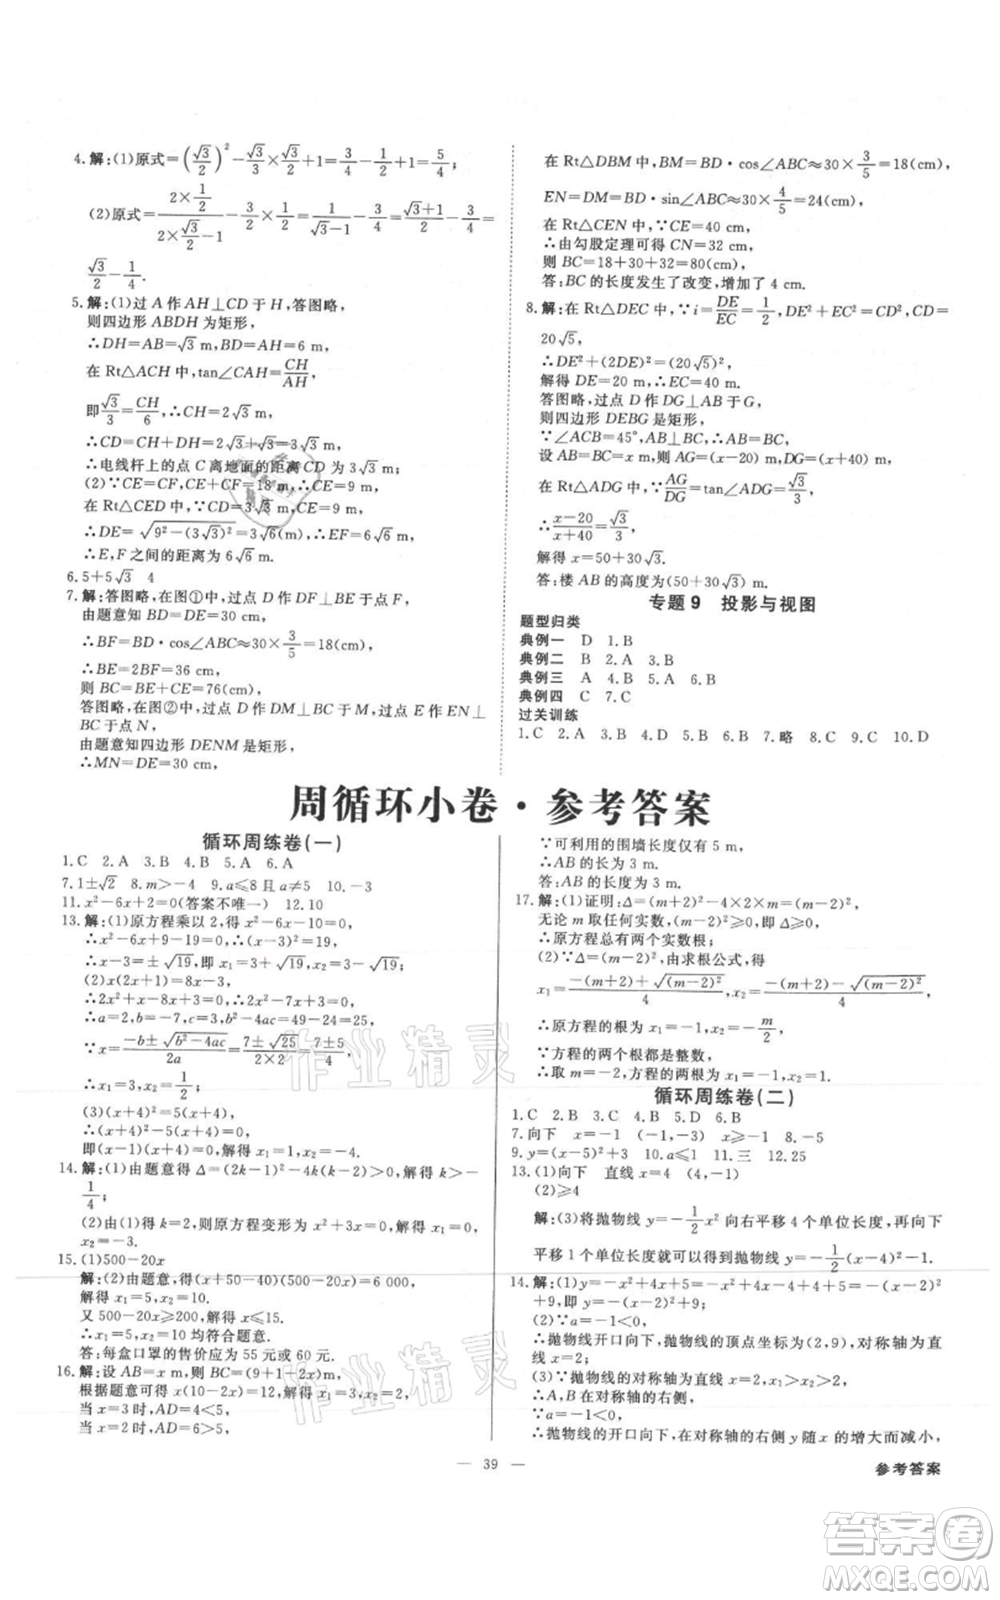 4.解:(1)原式=(√3/2)²-√3/3×√3/2+1=3/4-1/2+1=5/4;
(2)原式=(2×1/2)/(2×√3/2-1)-3/2×1/2=1/(√3-1)-3/4=(√3+1)/2-3/4=
√3/2-1/4.
5.解:(1)过 A 作 AH⊥CD 于 H,答图略,
则四边形 ABDH 为矩形,
∴DH=AB=√3 m,BD=AH=6 m.
在 Rt△ACH 中,tan∠CAH=CH/AH,
即√3/3=CH/6,∴CH=2√3 m,
∴CD=CH+DH=2√3+√3=3√3 m,
∴电线杆上的点 C 离地面的距离 CD 为 3√3 m.
(2)∵CE=CF,CE+CF=18 m,∴CE=9 m.
在 Rt△CED 中,∵CD=3√3 m,CE=9 m,
∴DE=√(9²-(3√3)²)=3√6(m),∴EF=6√6 m,
∴E,F 之间的距离为 6√6 m.
6.5+5√3 4
7.解:答图略,在图①中,过点 D 作 DF⊥BC 于点 F,
由题意知 BD=DE=30 cm,
∴BF=BD·cos∠ABC≈30×3/5=18(cm),
∴BE=2BF=36 cm,
则 BC=BE+CE=76(cm),
答图略,在图②中,过点 D 作 DM⊥BC 于 M,过点 E 作 EN⊥
BC 于点 N,
由题意知四边形 DENM 是矩形,
∴MN=DE=30 cm,
在 Rt△DBM 中,BM=BD·cos∠ABC≈30×3/5=18(cm),
EN=DM=BD·sin∠ABC≈30×4/5=24(cm),
在 Rt△CEN 中,∵CE=40 cm,
∴由勾股定理可得 CN=32 cm,
则 BC=18+30+32=80(cm),
答:BC 的长度发生了改变,增加了 4 cm.
8.解:在 Rt△DEC 中,∵i=DE/EC=1/2,DE²+EC²=CD²,CD=
20√5,
∴DE²+(2DE)²=(20√5)²,
解得 DE=20 m,∴EC=40 m.
答图略,过点 D 作 DG⊥AB 于 G,
则四边形 DEBG 是矩形,
∵∠ACB=45°,AB⊥BC,∴AB=BC.
设 AB=BC=x m,则 AG=(x-20)m,
在 Rt△ADG 中,∵AG/DG=tan∠ADG=√3/3,
∴(x-20)/(x+40)=√3/3,
解得 x=50+30√3.
答:楼 AB 的高度为(50+30√3)m.
专题 9 投影与视图
题型归类
典例一 D 1.B
典例二 B 2.A 3.B
典例三 A 4.B 5.A 6.B
典例四 C 7.C
过关训练
1.C 2.A 3.A 4.B 5.B 6.B 7.略 8.C 9.C 10.D
周循环小卷·参考答案
循环周练卷(一)
1.C 2.A 3.B 4.B 5.A 6.A
7.1±√2 8.m>-4 9.a≤8且a≠5 10.-3
11.x²-6x+2=0(答案不唯一) 12.10
13.解:(1)原方程乘以 2,得 x²-6x-10=0,
∴x²-6x+9=19,∴(x-3)²=19,
∴x-3=±√19,即 x₁=3+√19,x₂=3-√19.
(2)x(2x+1)=8x-3,
∴2x²+x=8x-3,∴2x²-7x+3=0,
∴a=2,b=-7,c=3,b²-4ac=49-24=25,
∵x=(-b±√(b²-4ac))/2a=(7±√25)/(2×2)=(7±5)/4,
∴x₁=3,x₂=1/2;
(3)(x-4)²=(5-2x)²,
∴(x-4)²-(5-2x)²=0,
即(x-1)(x-3)=0,∴x₁=1,x₂=3.
14.解:(1)由题意得 Δ=(2k-1)²-4k(k-2)>0,解得 k>-
1/4;
(2)由(1)得 k=2,则原方程变形为 x²+3x=0,解得 x₁=0,
x₂=-3.
15.(1)500-20x
解:(2)由题意,得(x+50-40)(500-20x)=6 000,
解得 x₁=5,x₂=10.
又 500-20x≥200,解得 x≤15.
∴x₁=5,x₂=10 均符合题意.
答:每盒口罩的售价应为 55 元或 60 元.
16.解:设 AB=x m,则 BC=(9+1-2x)m,
根据题意可得 x(10-2x)=12,解得 x₁=3,x₂=2,
当 x=3 时,AD=4<5,
当 x=2 时,AD=6>5,
∵可利用的围墙长仅有 5 m,
∴AB 的长为 3 m.
答:AB 的长为 3 m.
17.解:(1)证明:Δ=(m+2)²-4×2×m=(m-2)²,
无论 m 取任何实数,(m-2)²≥0,即Δ≥0,
∴原方程总有两个实数根;
(2)∵Δ=(m-2)²,由求根公式,得
x₁=(-(m+2)+√(m-2)²)/4,x₂=(-(m+2)-√(m-2)²)/4,
∴原方程的根为 x₁=-1,x₂=-m/2,
∵方程的两个根都是整数,
∴取 m=-2,方程的两根为 x₁=-1,x₂=1.
循环周练卷(二)
1.C 2.B 3.C 4.B 5.D 6.B
7.向下 x=-1 (-1,-3) x≥-1 8.-5
9.y=(x-5)²+3 10.a≤1 11.三 12.25
13.(1)向下 直线 x=4 (4,-1)
(2)≥4
解:(3)将抛物线 y=-1/2x² 向右平移 4 个单位长度,再向下
平移 1 个单位长度就可以得到抛物线 y=-1/2(x-4)²-1.
14.解:(1)y=-x²+4x+5=-x²+4x-4+4+5=-(x-2)²
+9,即 y=-(x-2)²+9;
(2)∵a=-1<0,
∴抛物线开口向下,抛物线的顶点坐标为(2,9),对称轴为直线
x=2;
(3)∵抛物线的对称轴为直线 x=2,
∴A,B 在对称轴的右侧,
∵a=-1<0,
∴抛物线的开口向下,在对称轴的右侧 y 随 x 的增大而减小,
— 39 —
参考答案
作业精灵
作业精灵
答案卷
MXQE.COM